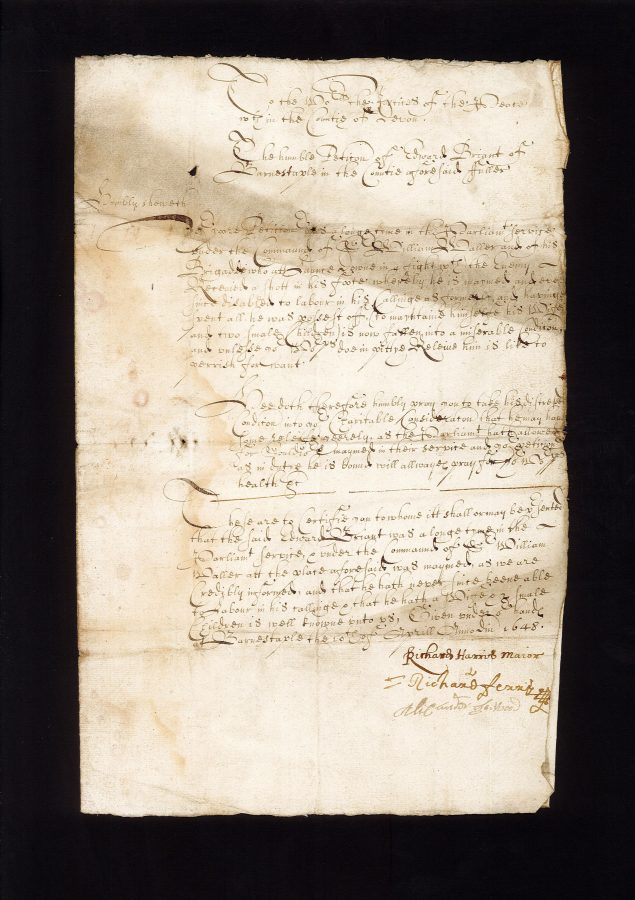 To the Wor the Justices of the Peace
wth in the Countie of Devon.
The humble Petition of Edward Briant of
Barnestaple in the Countie aforesaid fuller
Humbly sheweth
Petitioner was a longe tyme in the Parliamt service
under the Command of Sr William Waller and of his
Brigade who att in a fight wth the Enemy
Received a shott in his foote whereby he is maymed and ever
since disabled to labour in his Callinge as formerly and haveinge
spent all he was possest of (to maintaine him selfe his Wife
and two smale Children) is now fallen into a miserable Condicon
and unlesse yor Worps doe in Releive him is like to
perrish for want.
Hee doth therefore humbly pray you to take his distressed
Condicon into yor Charitable Consideracon that he may have
some releife as the Parliamt hath allowed
for Souldiers maymed in their service and yor Petitioner
as in dutie he is bound will allwayes pray for yor Worps
health &c
These are to Certifie you to whome itt shall or may be
that the said Edward Briant was a longe tyme in the
Parliamt service & under the Command of Sr William
Waller att the place aforesaid was maymed, as we are
Credibly informed, and that he hath never since beene able
to Labour in his callinge & that he hath a Wife & 2 smale
Children is well knowne unto us, Given under or hands
att Barnestaple the 10th of Aprill Anno dni 1648.
Richard Harris maior
Richard Ferris
Alexander